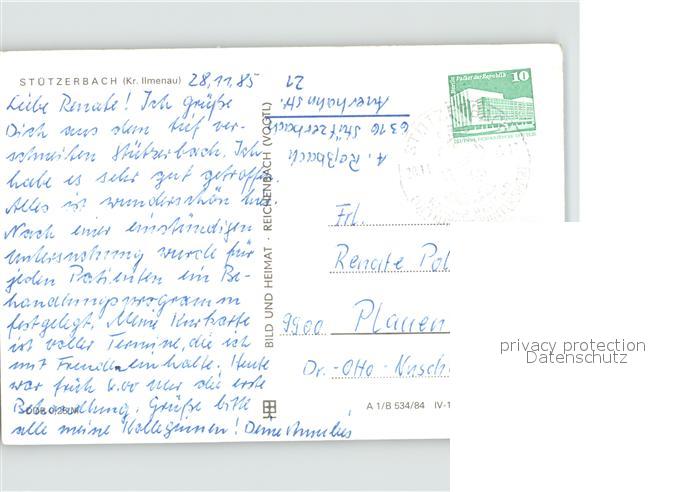 STÜTZERBACH (Kr. Ilmenau) 28.11.85
Liebe Renate! Ich grüße
Dich aus dem tief ver-
schneiten Stützerbach. Ich
habe es sehr gut getroffen.
Alles ist wunderschön hier.
Nach einer einstündigen
Untersuchung wurde für
jeden Patienten ein Be-
handlungsprogramm
festgelegt. Meine Kurkarte
ist voller Termine, die ich
mit Freude einhalte. Heute
war früh 6.00 Uhr die erste
Behandlung. Grüße bitte
alle meine Kolleginnen! Deine Annelies
BILD UND HEIMAT · REICHENBACH (VOGTL)
A. Roßbach
6316 Stützerbach
Auerhahnstr.
21
Palast der Republik
10
Frl.
Renate Pol
9900 Plauen
Dr.-Otto-Nusch
A 1/B 534/84 IV-1
privacy protection
Datenschutz